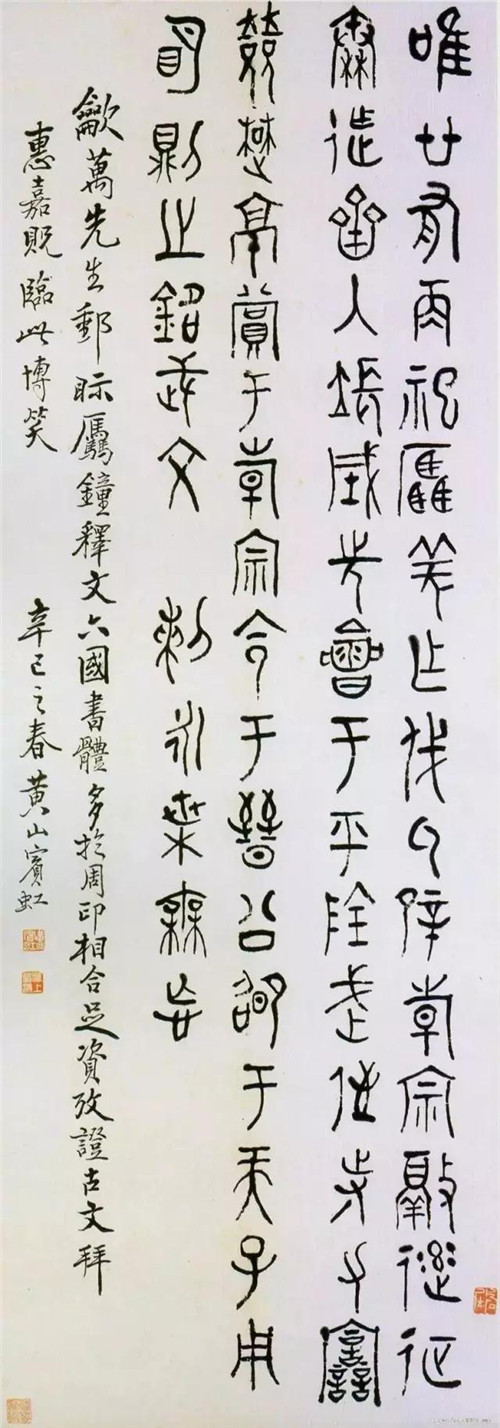 唯廿又再祀驫羌乍戎氒辟倝宗敲率征
秦迮齊入長城先會于平陰武侄寺力
敓楚京賞于倝宗令于晉公卲于天子用
明則之銘武文 剌永枼無忘
歙萬先生郵眎驫鐘釋文六國書體多於周印相合足資攷證古文拜
惠嘉貺臨此博笑 辛巳之春黃山賓虹